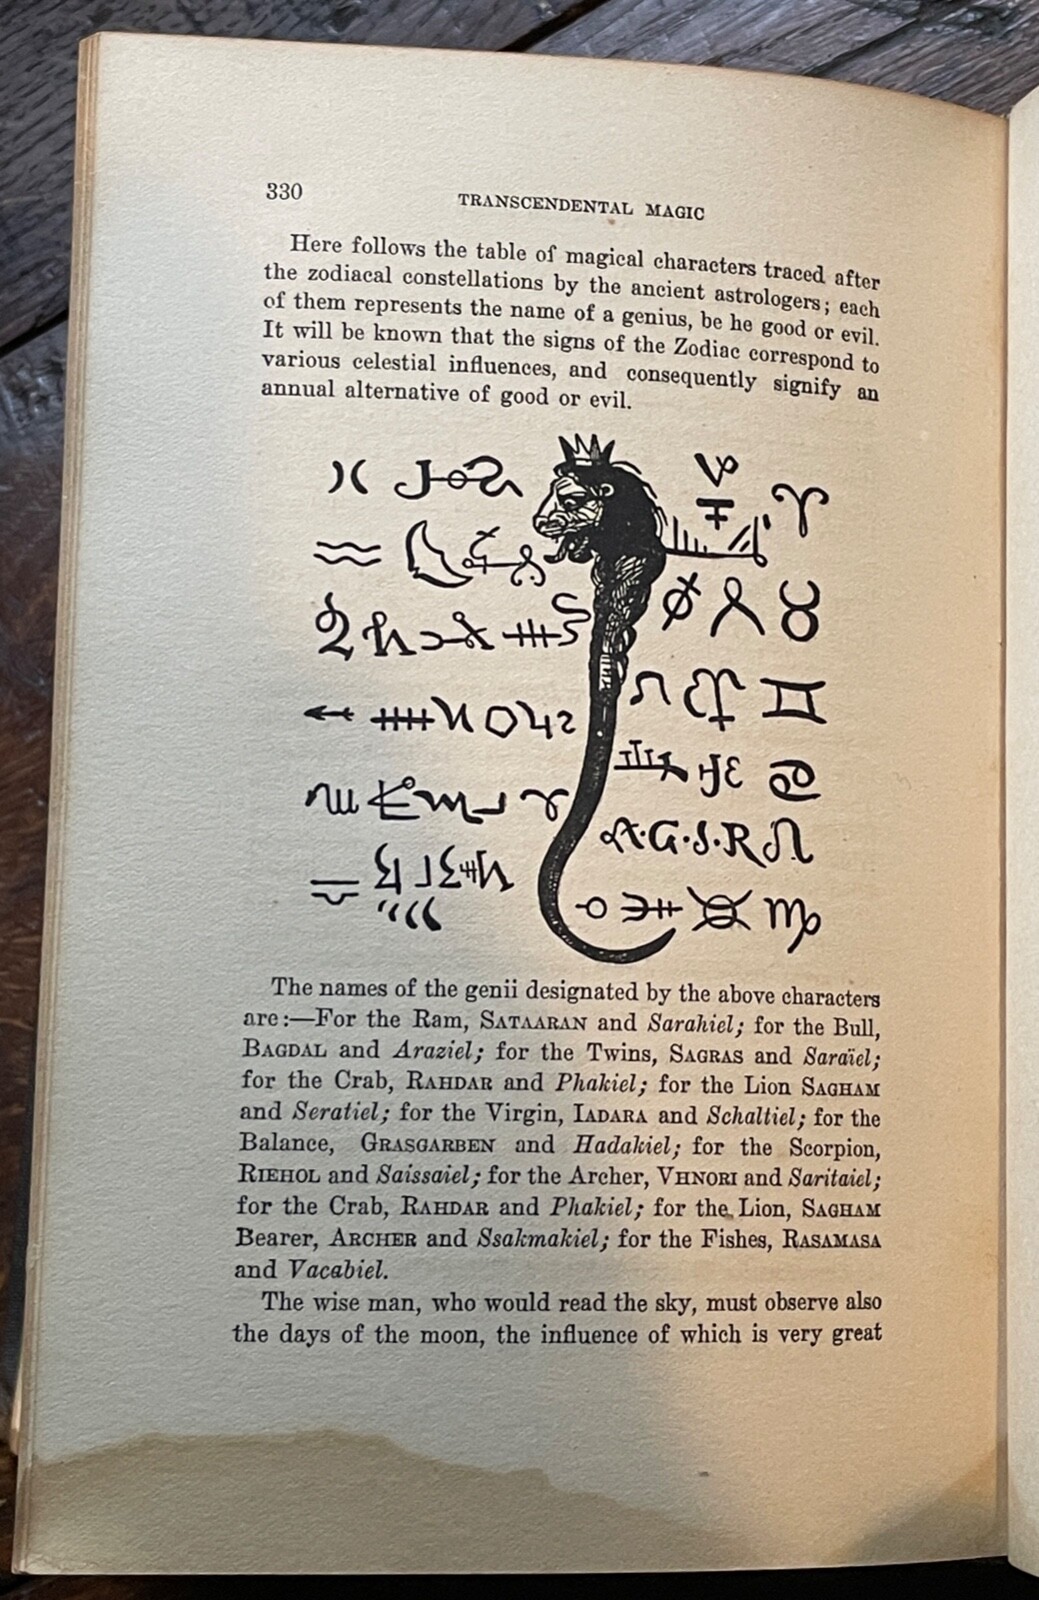 330
TRANSCENDENTAL MAGIC
Here follows the table of magical characters traced after
the zodiacal constellations by the ancient astrologers; each
of them represents the name of a genius, be he good or evil.
It will be known that the signs of the Zodiac correspond to
various celestial influences, and consequently signify an
annual alternative of good or evil.
A·G·S·R
The names of the genii designated by the above characters
are:—For the Ram, SATAARAN and Sarahiel; for the Bull,
BAGDAL and Araziel; for the Twins, SAGRAS and Saraïel;
for the Crab, RAHDAR and Phakiel; for the Lion SAGHAM
and Seratiel; for the Virgin, IADARA and Schaltiel; for the
Balance, GRASGARBEN and Hadakiel; for the Scorpion,
RIEHOL and Saissaiel; for the Archer, VHNORI and Saritaiel;
for the Crab, RAHDAR and Phakiel; for the Lion, SAGHAM
Bearer, ARCHER and Ssakmakiel; for the Fishes, RASAMASA
and Vacabiel.
The wise man, who would read the sky, must observe also
the days of the moon, the influence of which is very great